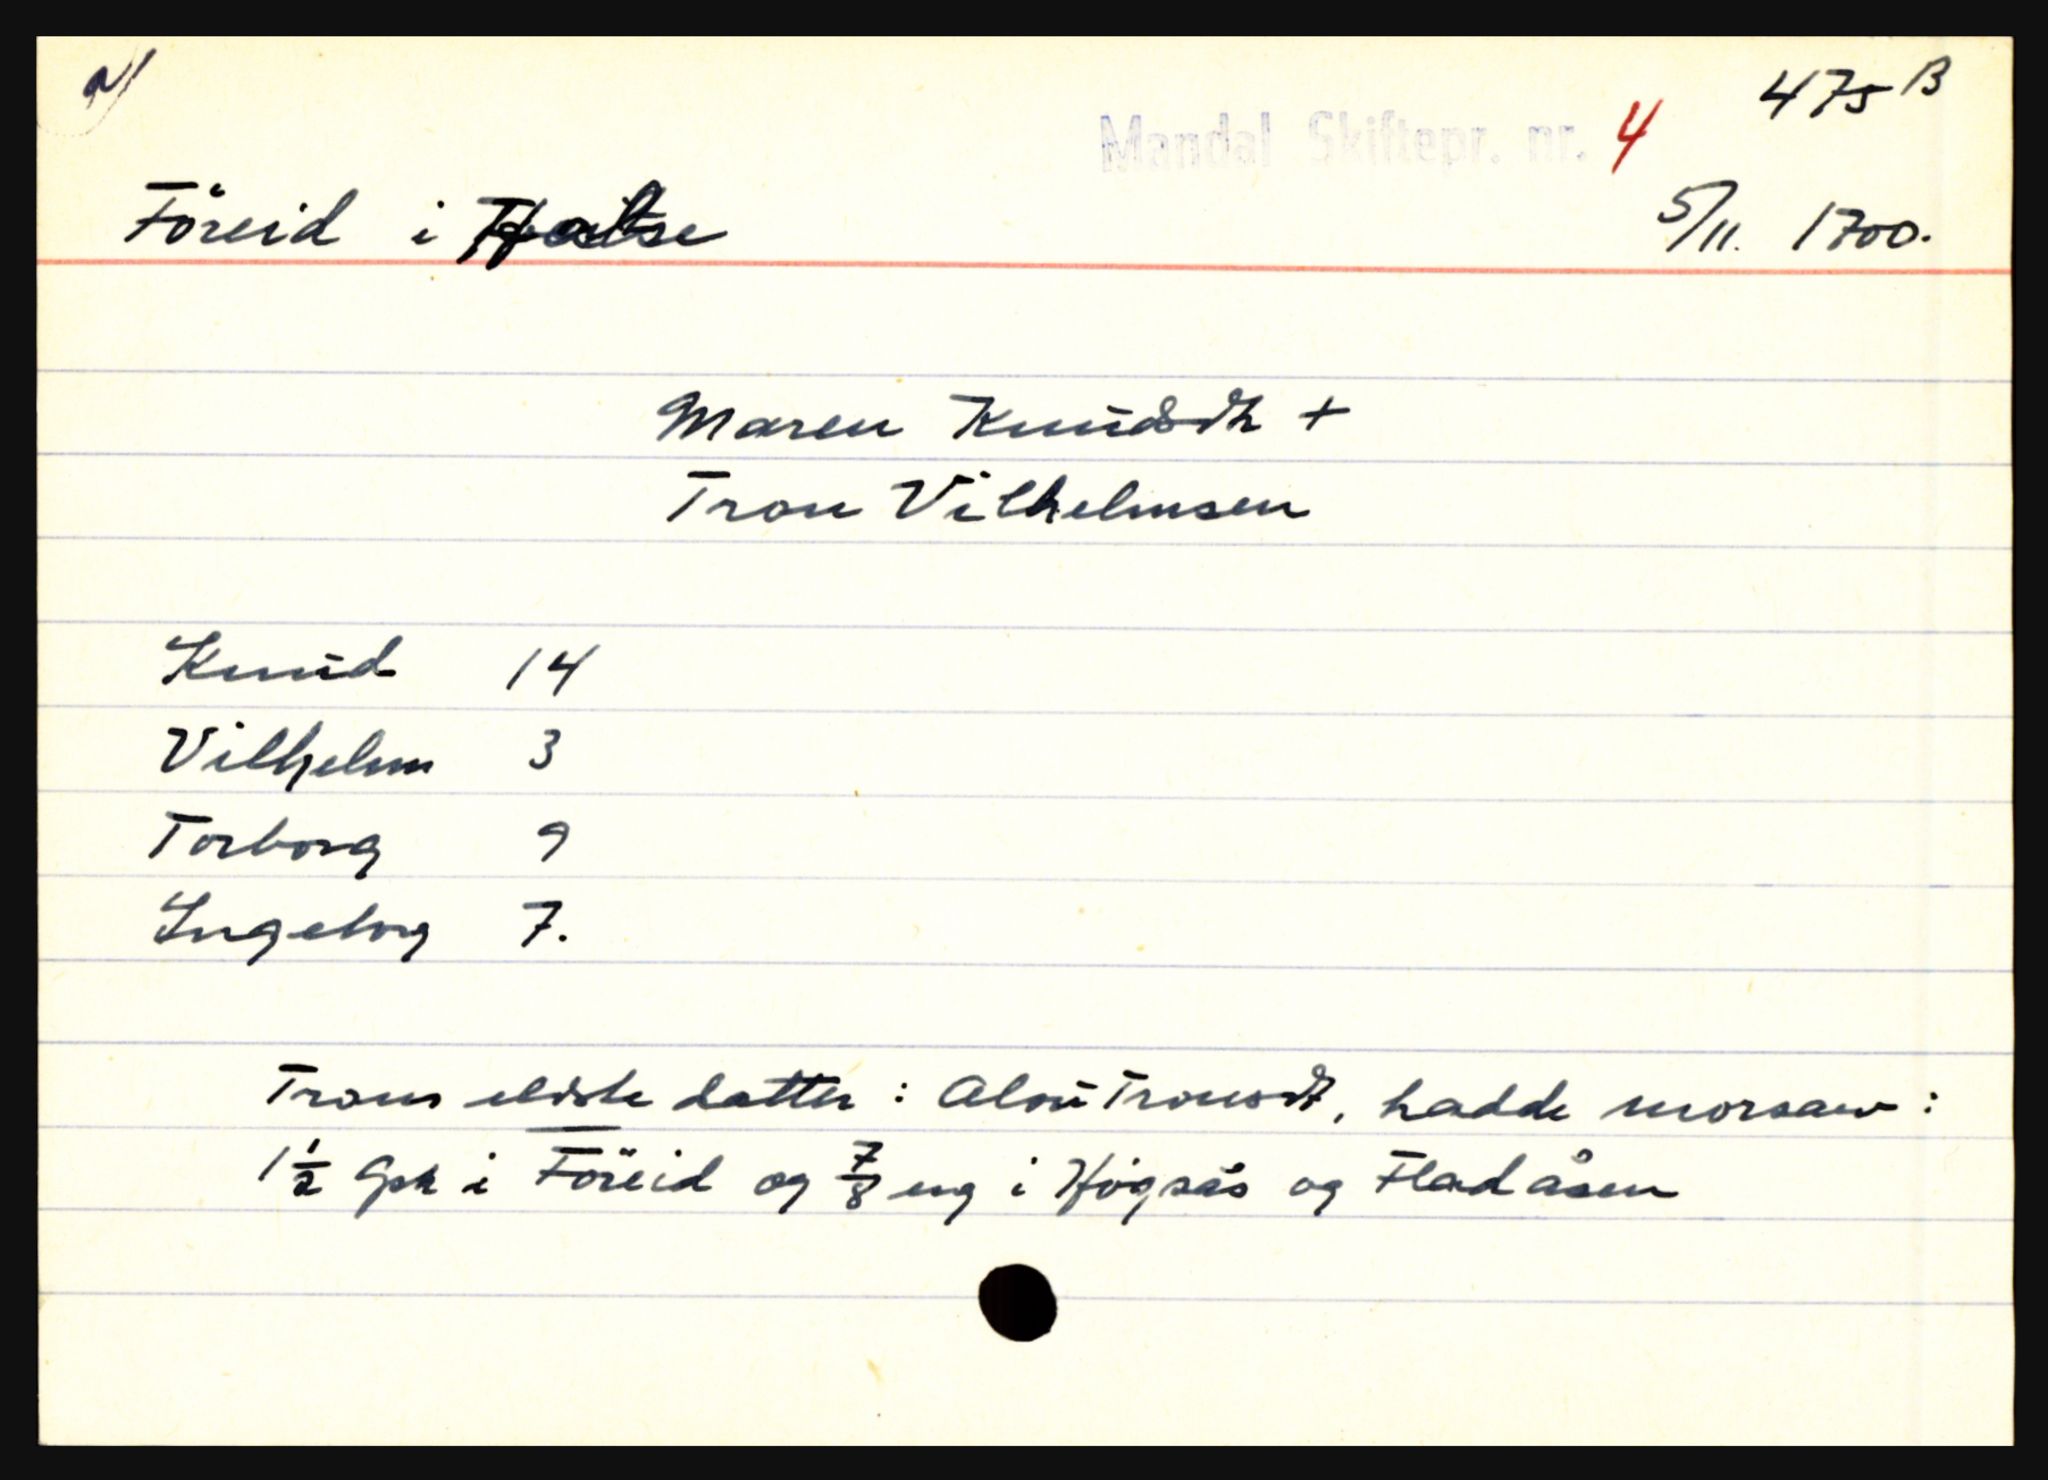 475 B
Mandal Skiftepr. nr. 4
Föreid i Halse 5/11. 1700.
Maren Knudsdtr +
Tron Vilhelmsen
Knud 14
Vilhelm 3
Torborg 9
Ingeborg 7.
Trons eldste datter : Alou Tronsdt, hadde morsarv :
1 1/2 Gsk i Föreid og 7/8 eng i Høgsås og Fladåsen